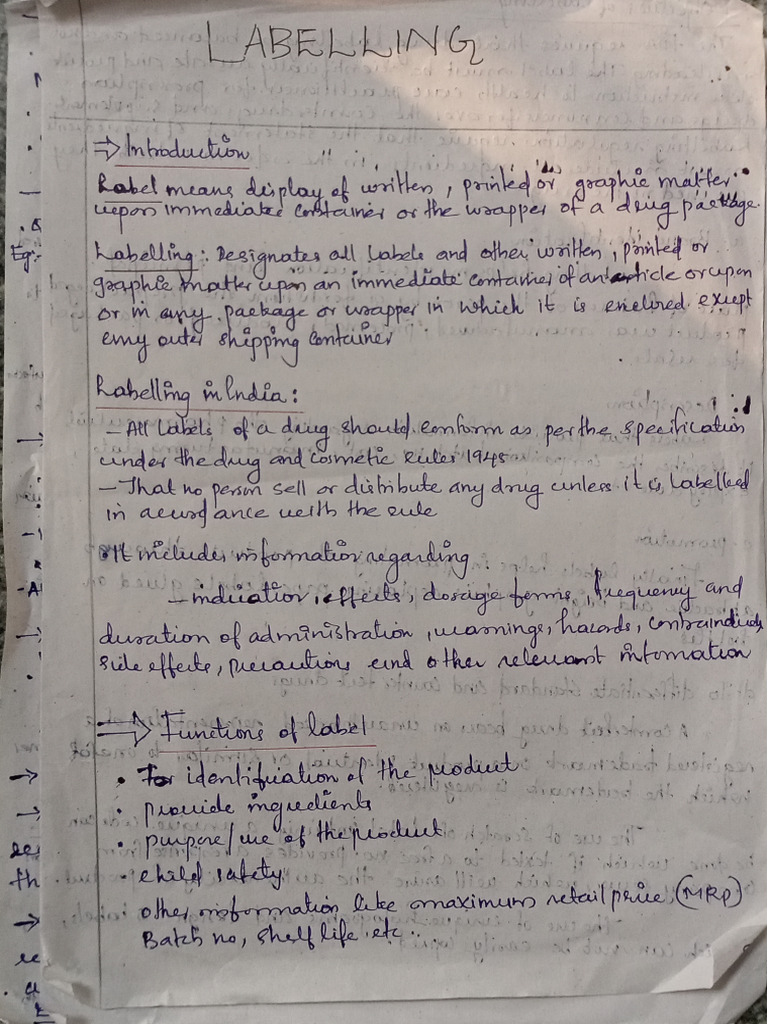 LABELLING
⇒ Introduction
Label means display of written, printed or graphic matter
upon immediate container or the wrapper of a drug package.
Labelling: Designates all labels and other written, printed or
graphic matter upon an immediate container of an article or upon
or in any package or wrapper in which it is enclosed except
any outer shipping container
Labelling in India:
- All labels of a drug should conform as per the specification
under the drug and cosmetic rules 1945
- That no person sell or distribute any drug unless it is labelled
in accordance with the rule
• It includes information regarding
- indication, effects, dosage forms, frequency and
duration of administration, warnings, hazards,
side effects, precautions and other relevant information
⇒ Functions of label
• For identification of the product
• provide ingredients
• purpose/use of the product
• child safety
• other information like maximum retail price (MRP)
Batch no, shelf life etc.
Eg:-